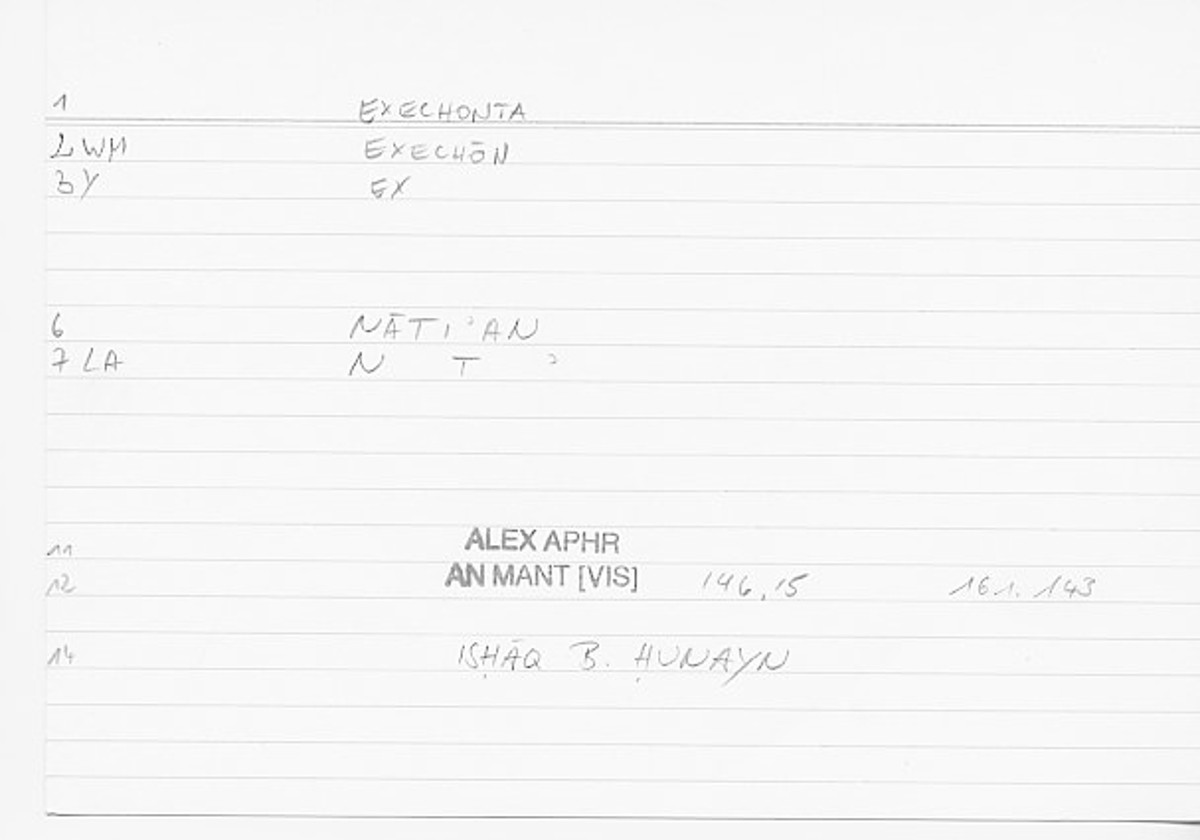 1 EXECHONTA
2 WM EXECHŌN
3 Y EX
6 NĀTIʾAN
7 LA N T ʾ
11 ALEX APHR
12 AN MANT [VIS] 146,15 161. 143
14 ISḤĀQ B. ḤUNAYN